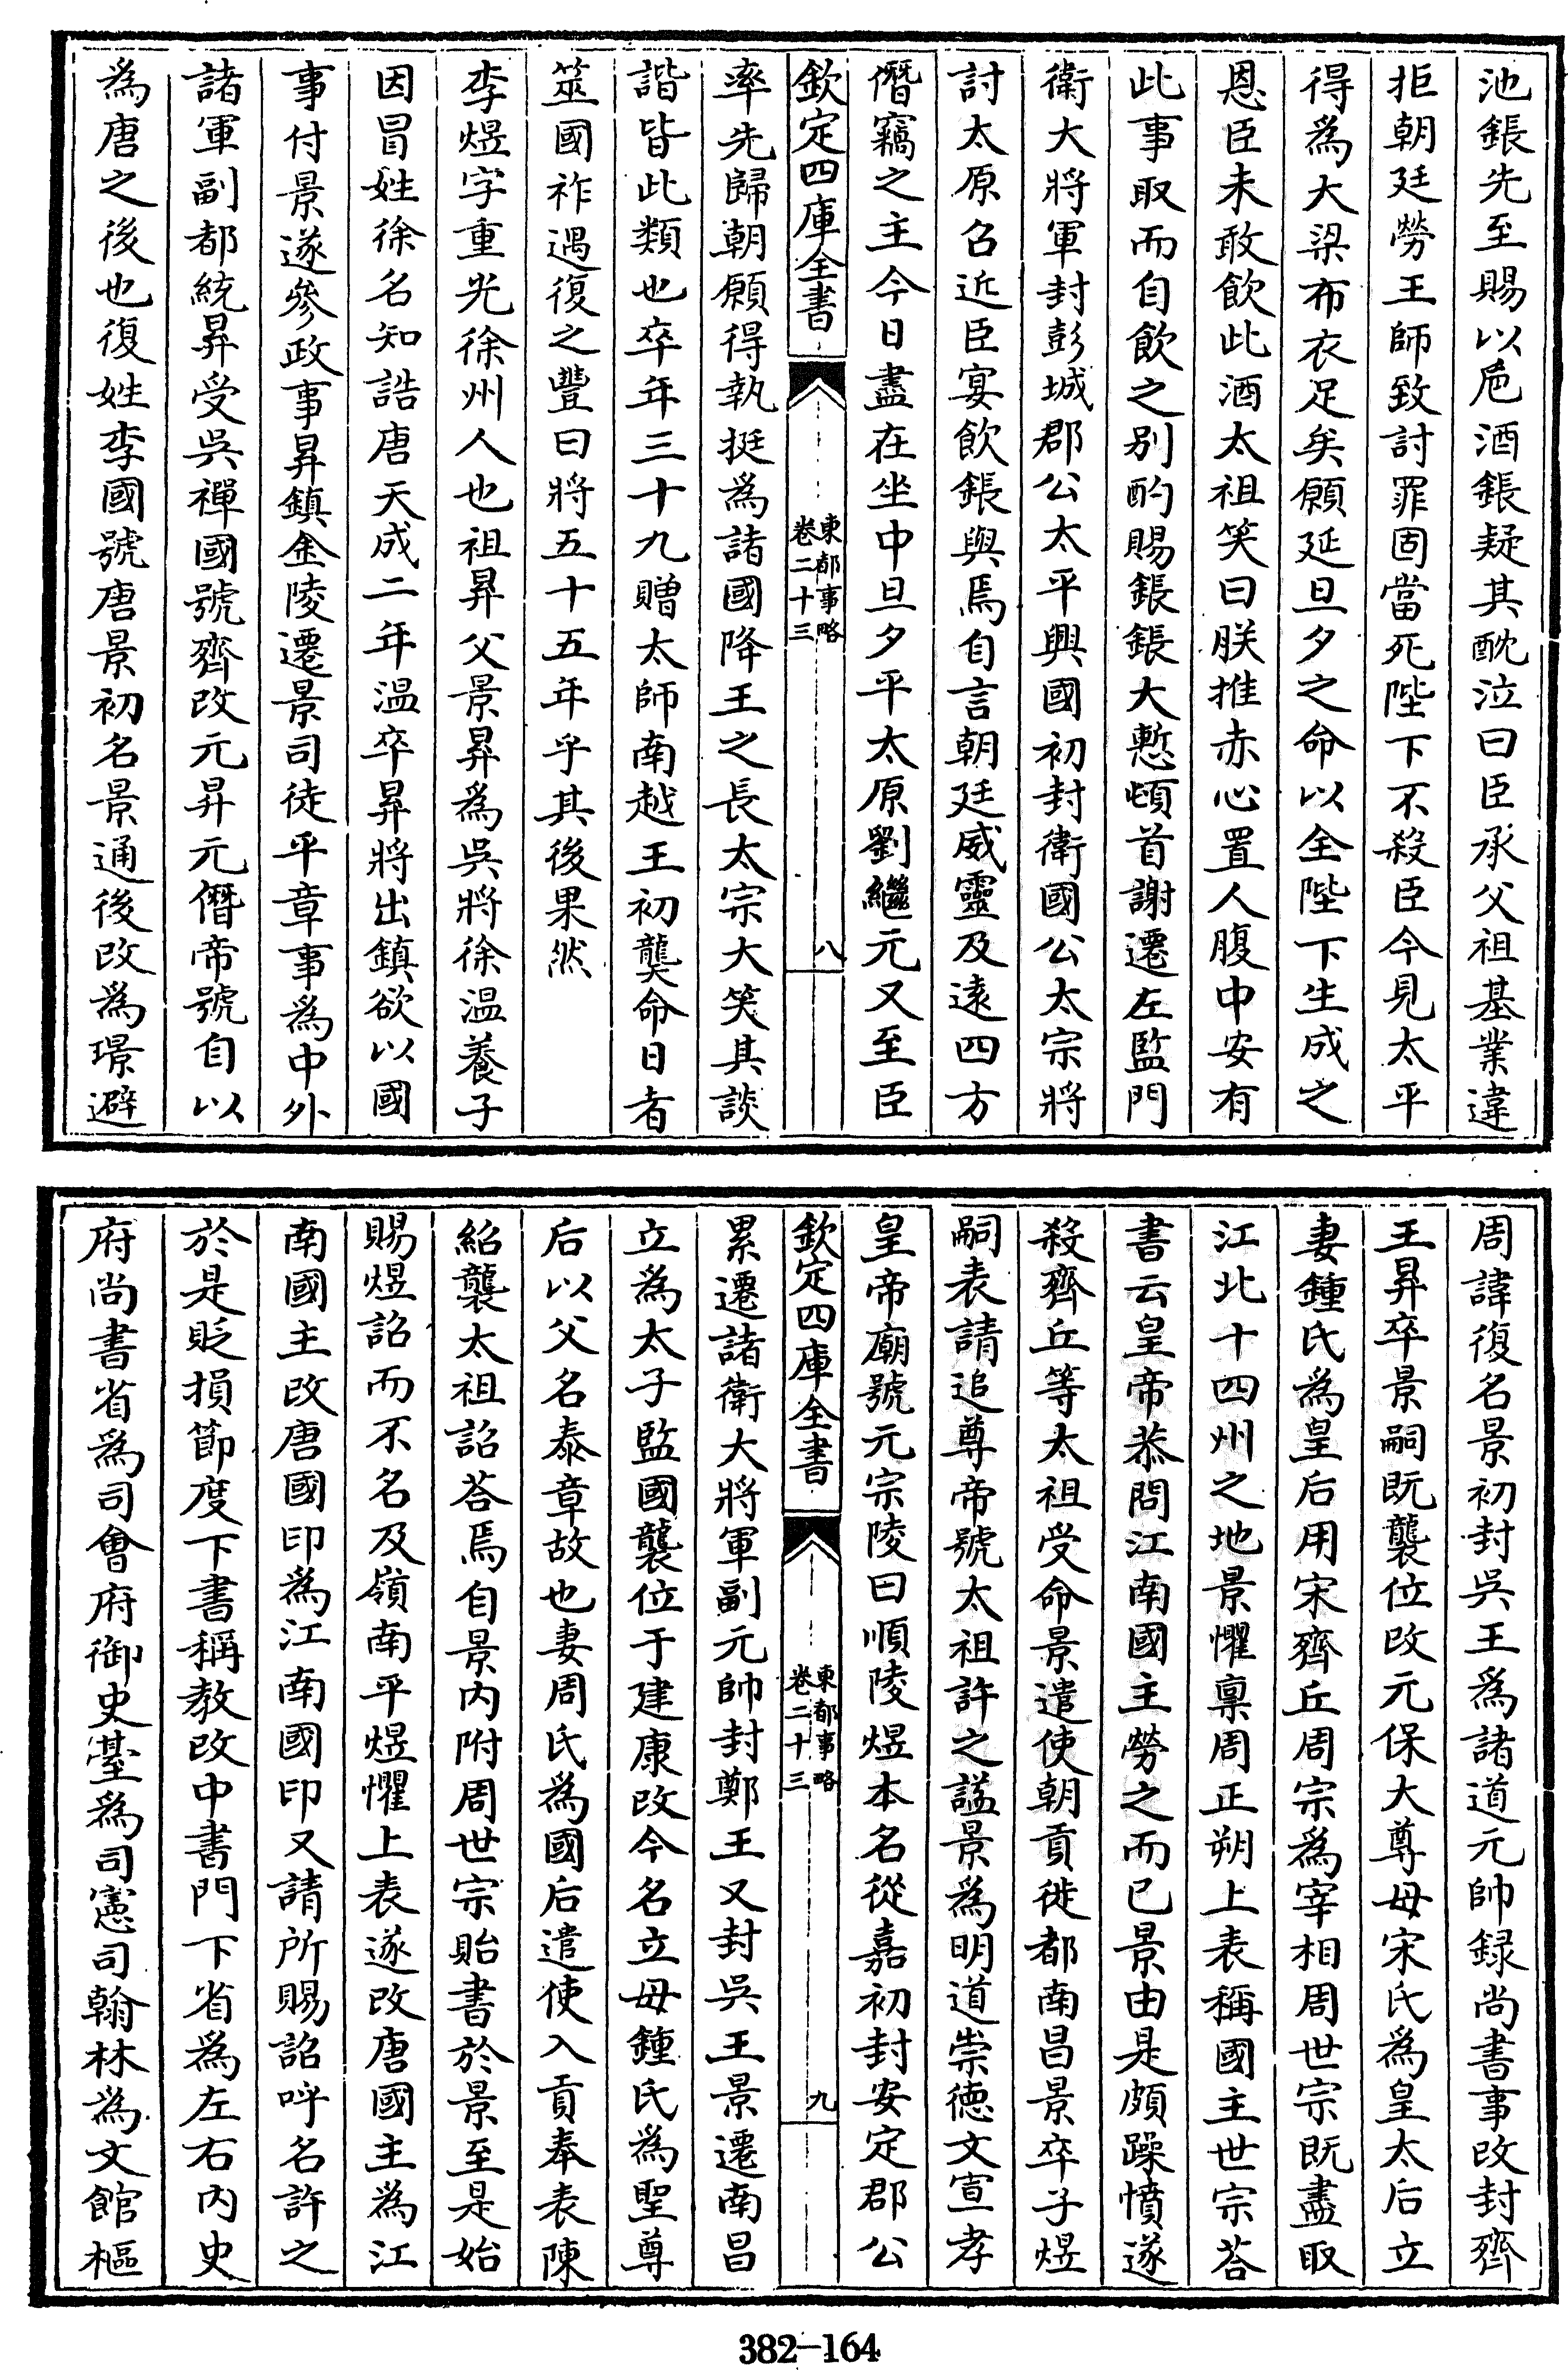 池鋹先至賜以巵酒鋹疑其酖泣曰臣承父祖基業違
拒朝廷勞王師致討罪固當死陛下不殺臣今見太平
得為大梁布衣足矣願延旦夕之命以全陛下生成之
恩臣未敢飲此酒太祖笑曰朕推赤心置人腹中安有
此事取而自飲之别酌賜鋹鋹大慙頓首謝遷左監門
衛大將軍封彭城郡公太平興國初封衛國公太宗將
討太原召近臣宴飲鋹與焉自言朝廷威靈及逺四方
僭竊之主今日盡在坐中旦夕平太原劉繼元又至臣
欽定四庫全書
東都事略
卷二十三
八
率先歸朝願得執挺為諸國降王之長太宗大笑其談
諧皆此類也卒年三十九贈太師南越王初龑命日者
筮國祚遇復之豐曰將五十五年乎其後果然
李煜字重光徐州人也祖昪父景昪為吳將徐温養子
因冒姓徐名知誥唐天成二年温卒昪將出鎮欲以國
事付景遂參政事昪鎮金陵遷景司徒平章事為中外
諸軍副都統昪受吳禪國號齊改元昇元僭帝號自以
為唐之後也復姓李國號唐景初名景通後改為璟避
周諱復名景初封吳王為諸道元帥録尚書事改封齊
王昪卒景嗣既襲位改元保大尊母宋氏為皇太后立
妻鍾氏為皇后用宋齊丘周宗為宰相周世宗既盡取
江北十四州之地景懼稟周正朔上表稱國主世宗荅
書云皇帝恭問江南國主勞之而已景由是頗躁憤遂
殺齊丘等太祖受命景遣使朝貢徙都南昌景卒子煜
嗣表請追尊帝號太祖許之諡景為明道崇徳文宣孝
皇帝廟號元宗陵曰順陵煜本名從嘉初封安定郡公
欽定四庫全書
東都事略
卷二十三
九
累遷諸衛大將軍副元帥封鄭王又封吳王景遷南昌
立為太子監國襲位于建康改今名立母鍾氏為聖尊
后以父名泰章故也妻周氏為國后遣使入貢奉表陳
紹襲太祖詔荅焉自景内附周世宗貽書於景至是始
賜煜詔而不名及嶺南平煜懼上表遂改唐國主為江
南國主改唐國印為江南國印又請所賜詔呼名許之
於是貶損節度下書稱教改中書門下省為左右内史
府尚書省為司會府御史臺為司憲司翰林為文館樞
382-164